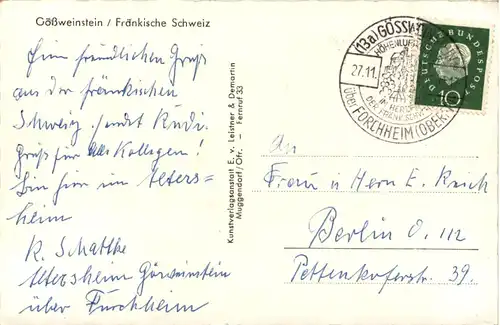 Gößweinstein / Fränkische Schweiz
Einen freundlichen Gruß
aus der fränkischen
Schweiz sendet Rudi.
Gruß für alle Kollegen!
Bin hier im Alters-
heim
R. Schattke
Altersheim Gössweinstein
über Forchheim
Kunstverlagsanstalt E. v. Leistner & Demartin
Muggendorf/Ofr. - Fernruf 33
(13a) GÖSSW
HÖHENLUFT
27.11.
HERZ
DER FRÄNK. SCHWEIZ
über FORCHHEIM (OBERFR
DEUTSCHE BUNDESPOST
10
An
Frau u Herrn E.
Berlin O. 112
Pettenkoferstr. 39.